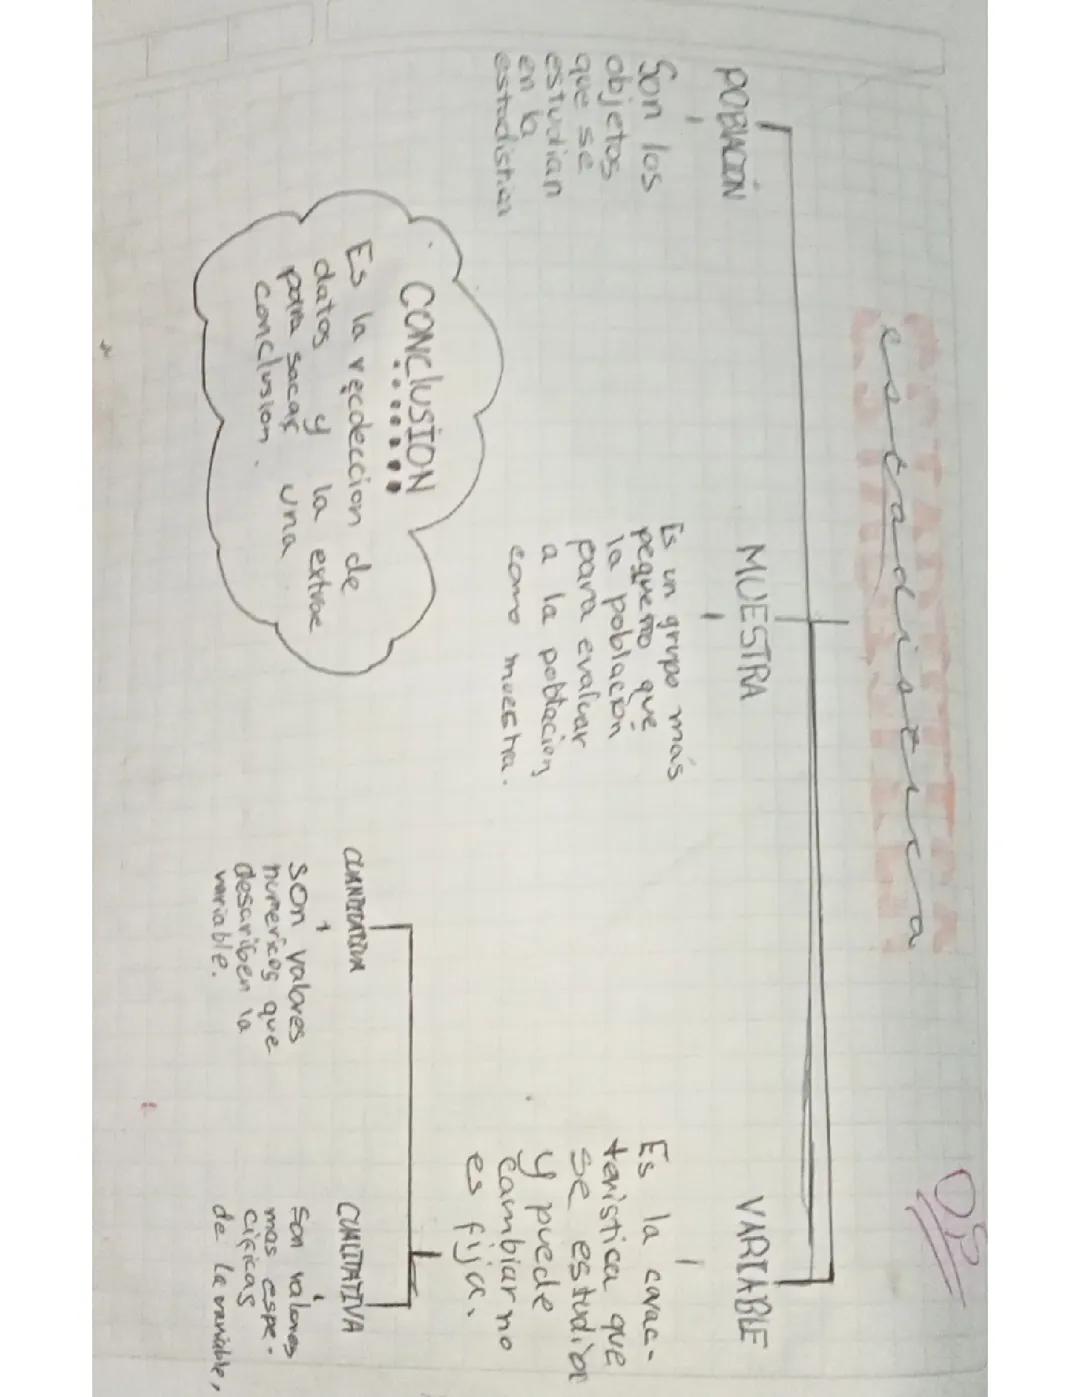 estadistica
0,5
POBLACIÓN
Son los
objetos
que se
estudian
en la
estadistica
MUESTRA
Es un grupo más
pequeño que
la población
para evaluar
a la poblacion
como muestra.
VARIABLE
Es la carac-
teristica que
se estudia
y puede
cambiar no
es fija.
CUANTITATIVA
son valores
numericos que
describen la
variable.
CUALITATIVA
Son valores
mas espe-
cificas
de la variable,
CONCLUSION
Es la recoleccion de
datos y la extrae
para sacar una
conclusion.